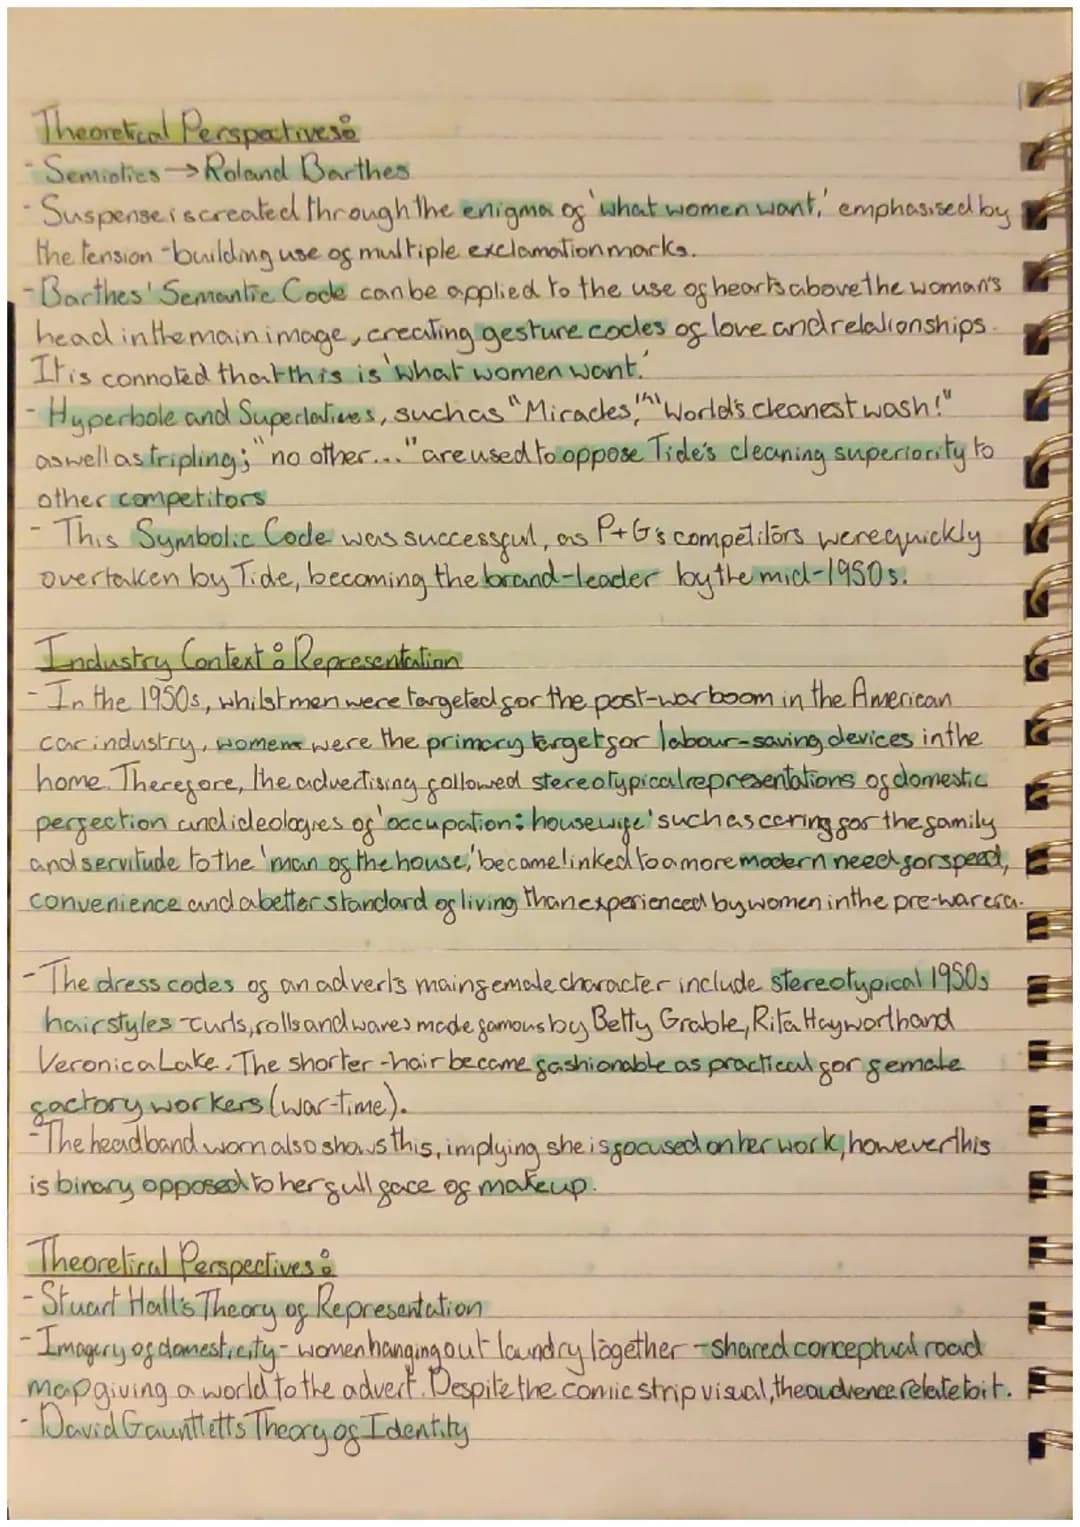 Theoretical Perspectives:
- Semiotics → Roland Barthes
- Suspense is created through the enigma of 'what women want,' emphasised by
the tension-building use of multiple exclamation marks.
- Barthes' Semantic Code can be applied to the use of hearts above the woman's
head in the main image, creating gesture codes of love and relationships.
It is connoted that this is 'what women want.'
- Hyperbole and Superlatives, such as "Miracles," "World's cleanest wash!"
as well as tripling; "no other..." are used to oppose Tide's cleaning superiority to
other competitors
- This Symbolic Code was successful, as P+G's competitors were quickly
overtaken by Tide, becoming the brand-leader by the mid-1950s.
Industry Context: Representation
- In the 1950s, whilst men were targeted for the post-war boom in the American
car industry, women were the primary target for labour-saving devices in the
home. Therefore, the advertising followed stereotypical representations of domestic
perfection and ideologies of 'occupation: housewife' such as caring for the family
and servitude to the 'man of the house,' became linked to a more modern need for speed,
convenience and a better standard of living than experienced by women in the pre-war era.
- The dress codes of an advert's main female character include stereotypical 1950s
hairstyles - curls, rolls and waves made famous by Betty Grable, Rita Hayworth and
Veronica Lake. The shorter-hair became fashionable as practical for female
factory workers (war-time).
- The headband worn also shows this, implying she is focused on her work, however this
is binary opposed to her full face of makeup.
Theoretical Perspectives:
- Stuart Hall's Theory of Representation
- Imagery of domesticity - women hanging out laundry together - shared conceptual road
map giving a world to the advert. Despite the comic strip visual, the audience relate to it.
- David Gauntletts Theory of Identity